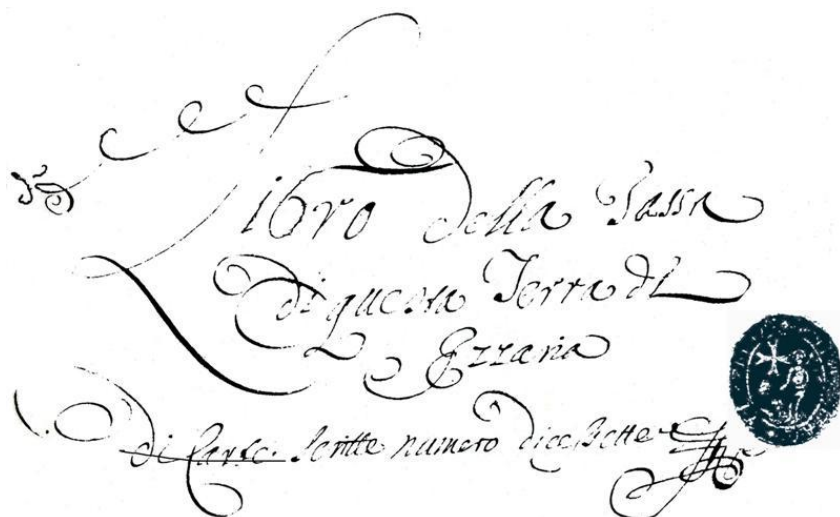 Libro della Tassa
di questa Terra di
Ezzaria
di Carte scritte numero dicesette